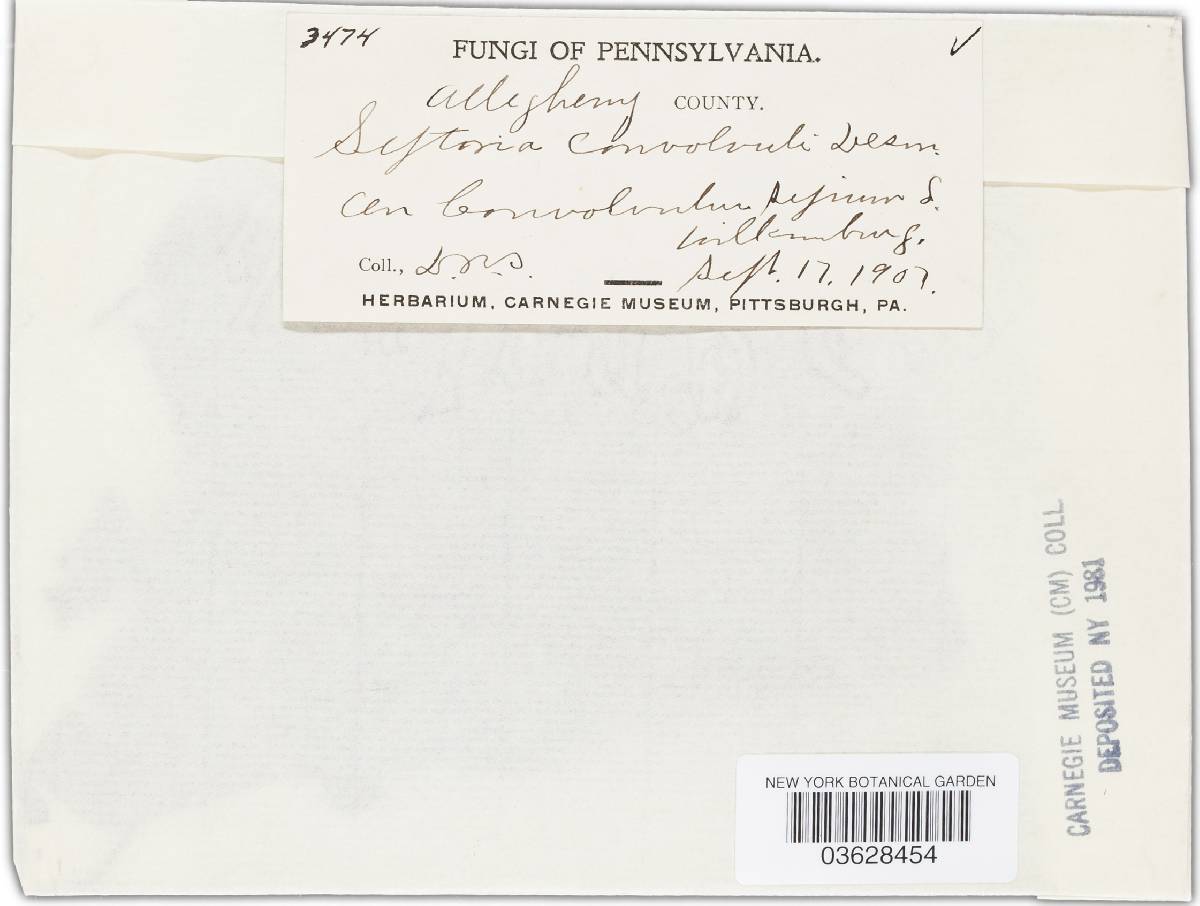 3474 ✓
FUNGI OF PENNSYLVANIA.
Allegheny COUNTY.
Septoria Convolvuli Desm.
On Convolvulus sepium L.
Wilkinsburg.
Coll., D.R.S. Sept. 17, 1907.
HERBARIUM, CARNEGIE MUSEUM, PITTSBURGH, PA.
CARNEGIE MUSEUM (CM) COLL.
DEPOSITED NY 1981
NEW YORK BOTANICAL GARDEN
03628454